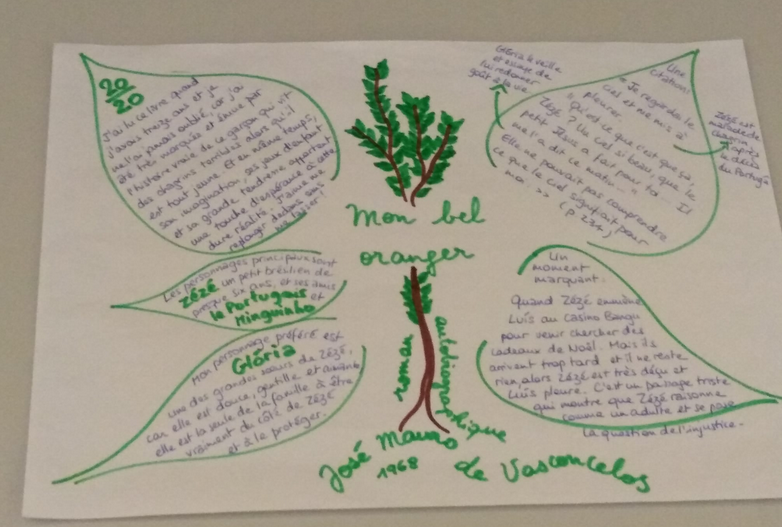 20/20
J'ai lu ce livre quand
j'avais treize ans et je
ne l'ai jamais oublié, car j'ai
été très marquée et émue par
l'histoire vraie de ce garçon qui vit
des chagrins terribles alors qu'il
est tout jeune. Et en même temps,
son imagination, ses jeux d'enfant
et sa grande tendresse apportent
une touche d'espérance à cette
dure réalité. J'aime me
replonger dedans sans
me lasser!
Les personnages principaux sont
Zézé, un petit brésilien de
presque six ans, et ses amis
le Portugais et
Minguinho
Mon personnage préféré est
Glória
une des grandes sœurs de Zézé,
car elle est douce, gentille et aimante
elle est la seule de la famille à être
vraiment du côté de Zézé
et à le protéger.
Mon bel
oranger
roman
autobiographique
José Mauro
de Vasconcelos
1968
Glória le veille
et essaye de
lui redonner
goût à la vie
Une
citation:
"Je regardais le
ciel et me mis à
pleurer.
"Qu'est ce que c'est que ça,
Zézé? Un ciel si beau, que le
petit Jésus a fait pour toi... Il
me l'a dit ce matin..."
Elle ne pouvait pas comprendre
ce que le ciel signifiait pour
moi. >> (p 234)
Zézé est
malade de
chagrin
après
le décès
du Portugais
Un
moment
marquant.
Quand Zézé emmène
Luis au Casino Bangu
pour venir chercher des
cadeaux de Noël. Mais ils
arrivent trop tard et il ne reste
rien, alors Zézé est très déçu et
Luis pleure. C'est un passage triste
qui montre que Zézé raisonne
comme un adulte et se pose
la question de l'injustice.